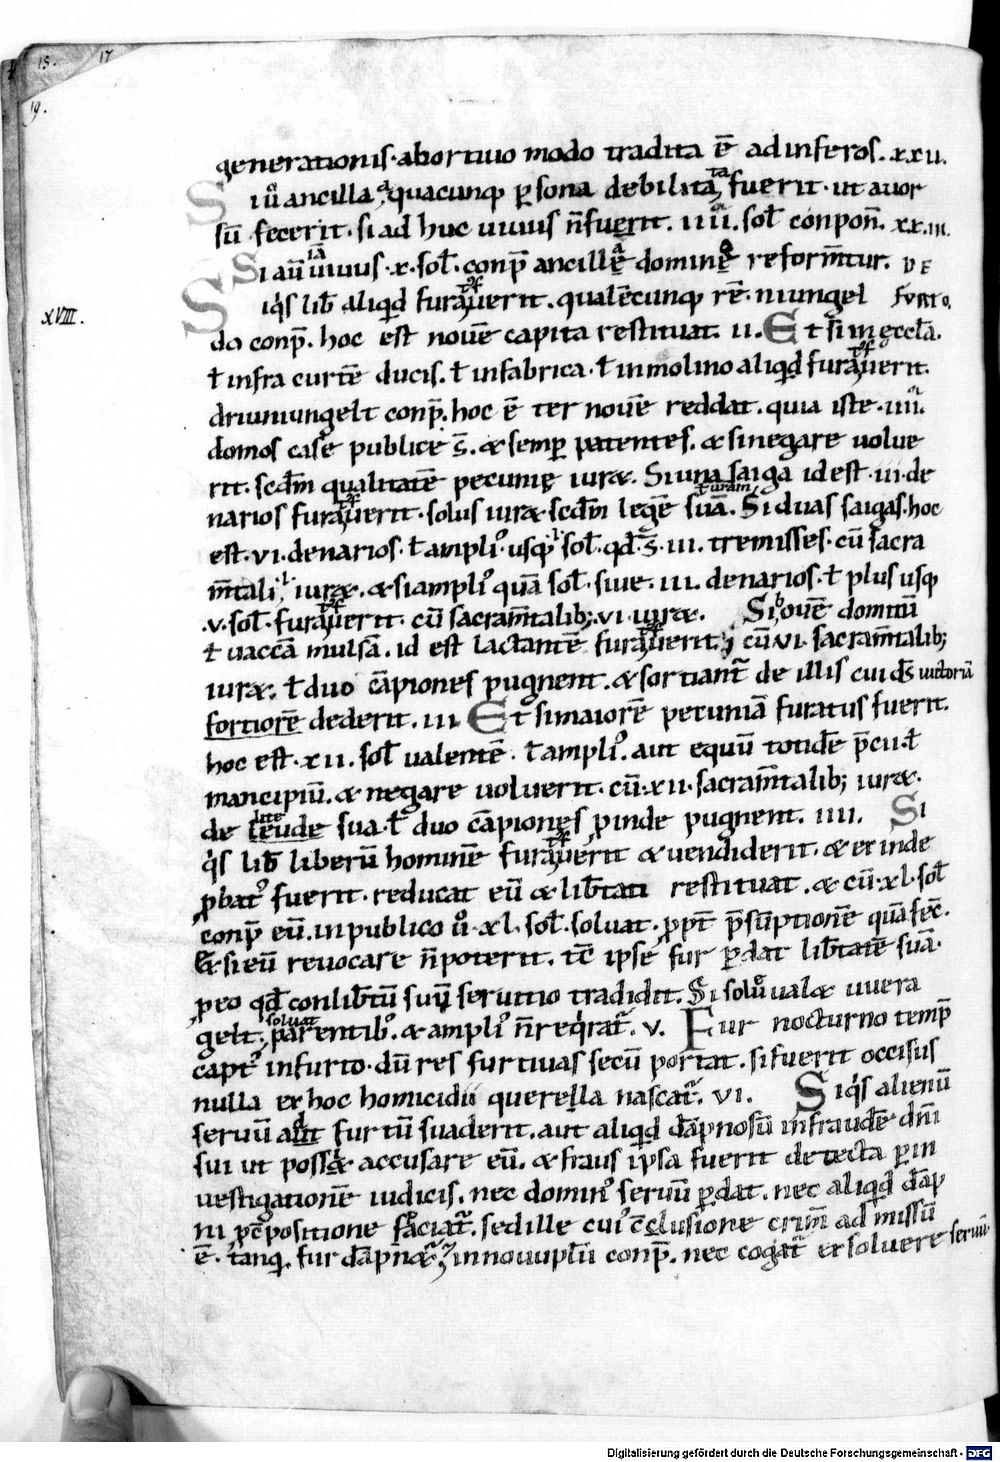 15. 17
19.
generationis. abortiuo modo tradita ē ad inferos. xxii.
Si ů ancilla a quacunq; psona debilitata fuerit. ut auor
sū fecerit. si ad huc uiuus n̄ fuerit. iiii. sol conpon̄. xx.iii.
Si aū iā uiuus. x. sol. conp̄ ancillę dominę reform̄tur. DE
Si q̇s lib̄ aliqd furauerit. qualēcunq; rē. niungel FVRTO.
XVIII.
do conp̄. hoc est nouē capita restituat. ii. Et si in ęccl̄a.
ł infra curtē ducis. ł in fabrica. ł in molino aliqd furauerit.
driuniungelt conp̄. hoc ē ter nouē reddat. quia iste. iiii.
domos casę publicę s̄. & semp patentes. & si negare uolue
rit. scd̄m qualitatē pecunię iur&. Si una saiga id est. iii. de
narios furauerit. solus iur& scd̄m legē suā. Si duas saigas. hoc
est. vi. denarios. ł ampli᾿. usq; sol. qd s̄. iii. tremisses. cū sacra
m̄tali. i. iur&. & si ampli᾿ quā sol. siue. iii. denarios. ł plus usq;
.v. sol. furauerit. cū sacram̄talib; vi. iur&. Si bouē domitū
ł uaccā mulsā. id est lactantē furauerit. cū vi. sacram̄talib;
iur&. ł duo cāpiones pugnent. & sortiant̄ de illis cui ds̄ uictoriā
fortiorē dederit. iii. Et si maiorē pecuniā furatus fuerit.
hoc est. xii. sol ualentē. ł ampli᾿. aut equū totidē p̄cii. ł
mancipiū. & negare uoluerit. cū. xii. sacram̄talib; iur&.
de leude sua. ł duo cāpiones pinde pugnent. iiii. Si
q̇s lib̄ liberū hominē furauerit & uendiderit. & ex inde
pbat᾿ fuerit. reducat eū & lib̄tati restituat. & cū. xl. sol
conp̄ eū. in publico ů. xl. sol. soluat. ppt̄ p̄sūptionē quā fec̄.
& si eū reuocare n̄ poterit. tc̄ ipse fur pdat lib̄tatē suā.
p eo qd conlib̄tū suū seruitio tradidit. Si solů ual& uuera
gelt. soluat parentib᾿. & ampli᾿ n̄ req̇rat̄. v. Fur nocturno temp̄
capt᾿ in furto. dū res furtiuas secū portat. si fuerit occisus
nulla ex hoc homicidii querella nascat̄. vi. Si q̇s alienū
seruū ad furtū suaderit. aut aliqd dāpnosū in fraudē dn̄i
sui ut poss& accusare eū. & fraus ipsa fuerit detecta p in
uestigationē iudicis. nec domin᾿ seruū pdat. nec aliqd dāp
ni faciat̄. sed ille cui᾿ crim̄ admissū
ē. tanq; fur dāpn&. in nouuplū conp̄. nec cogat̄ exsoluere seruū
Digitalisierung gefördert durch die Deutsche Forschungsgemeinschaft - DFG